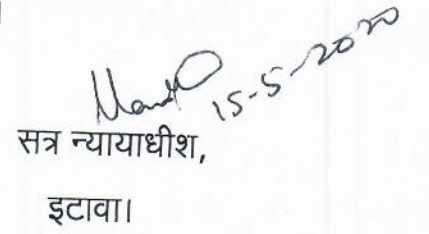 15-5-2020
सत्र न्यायाधीश,
इटावा।